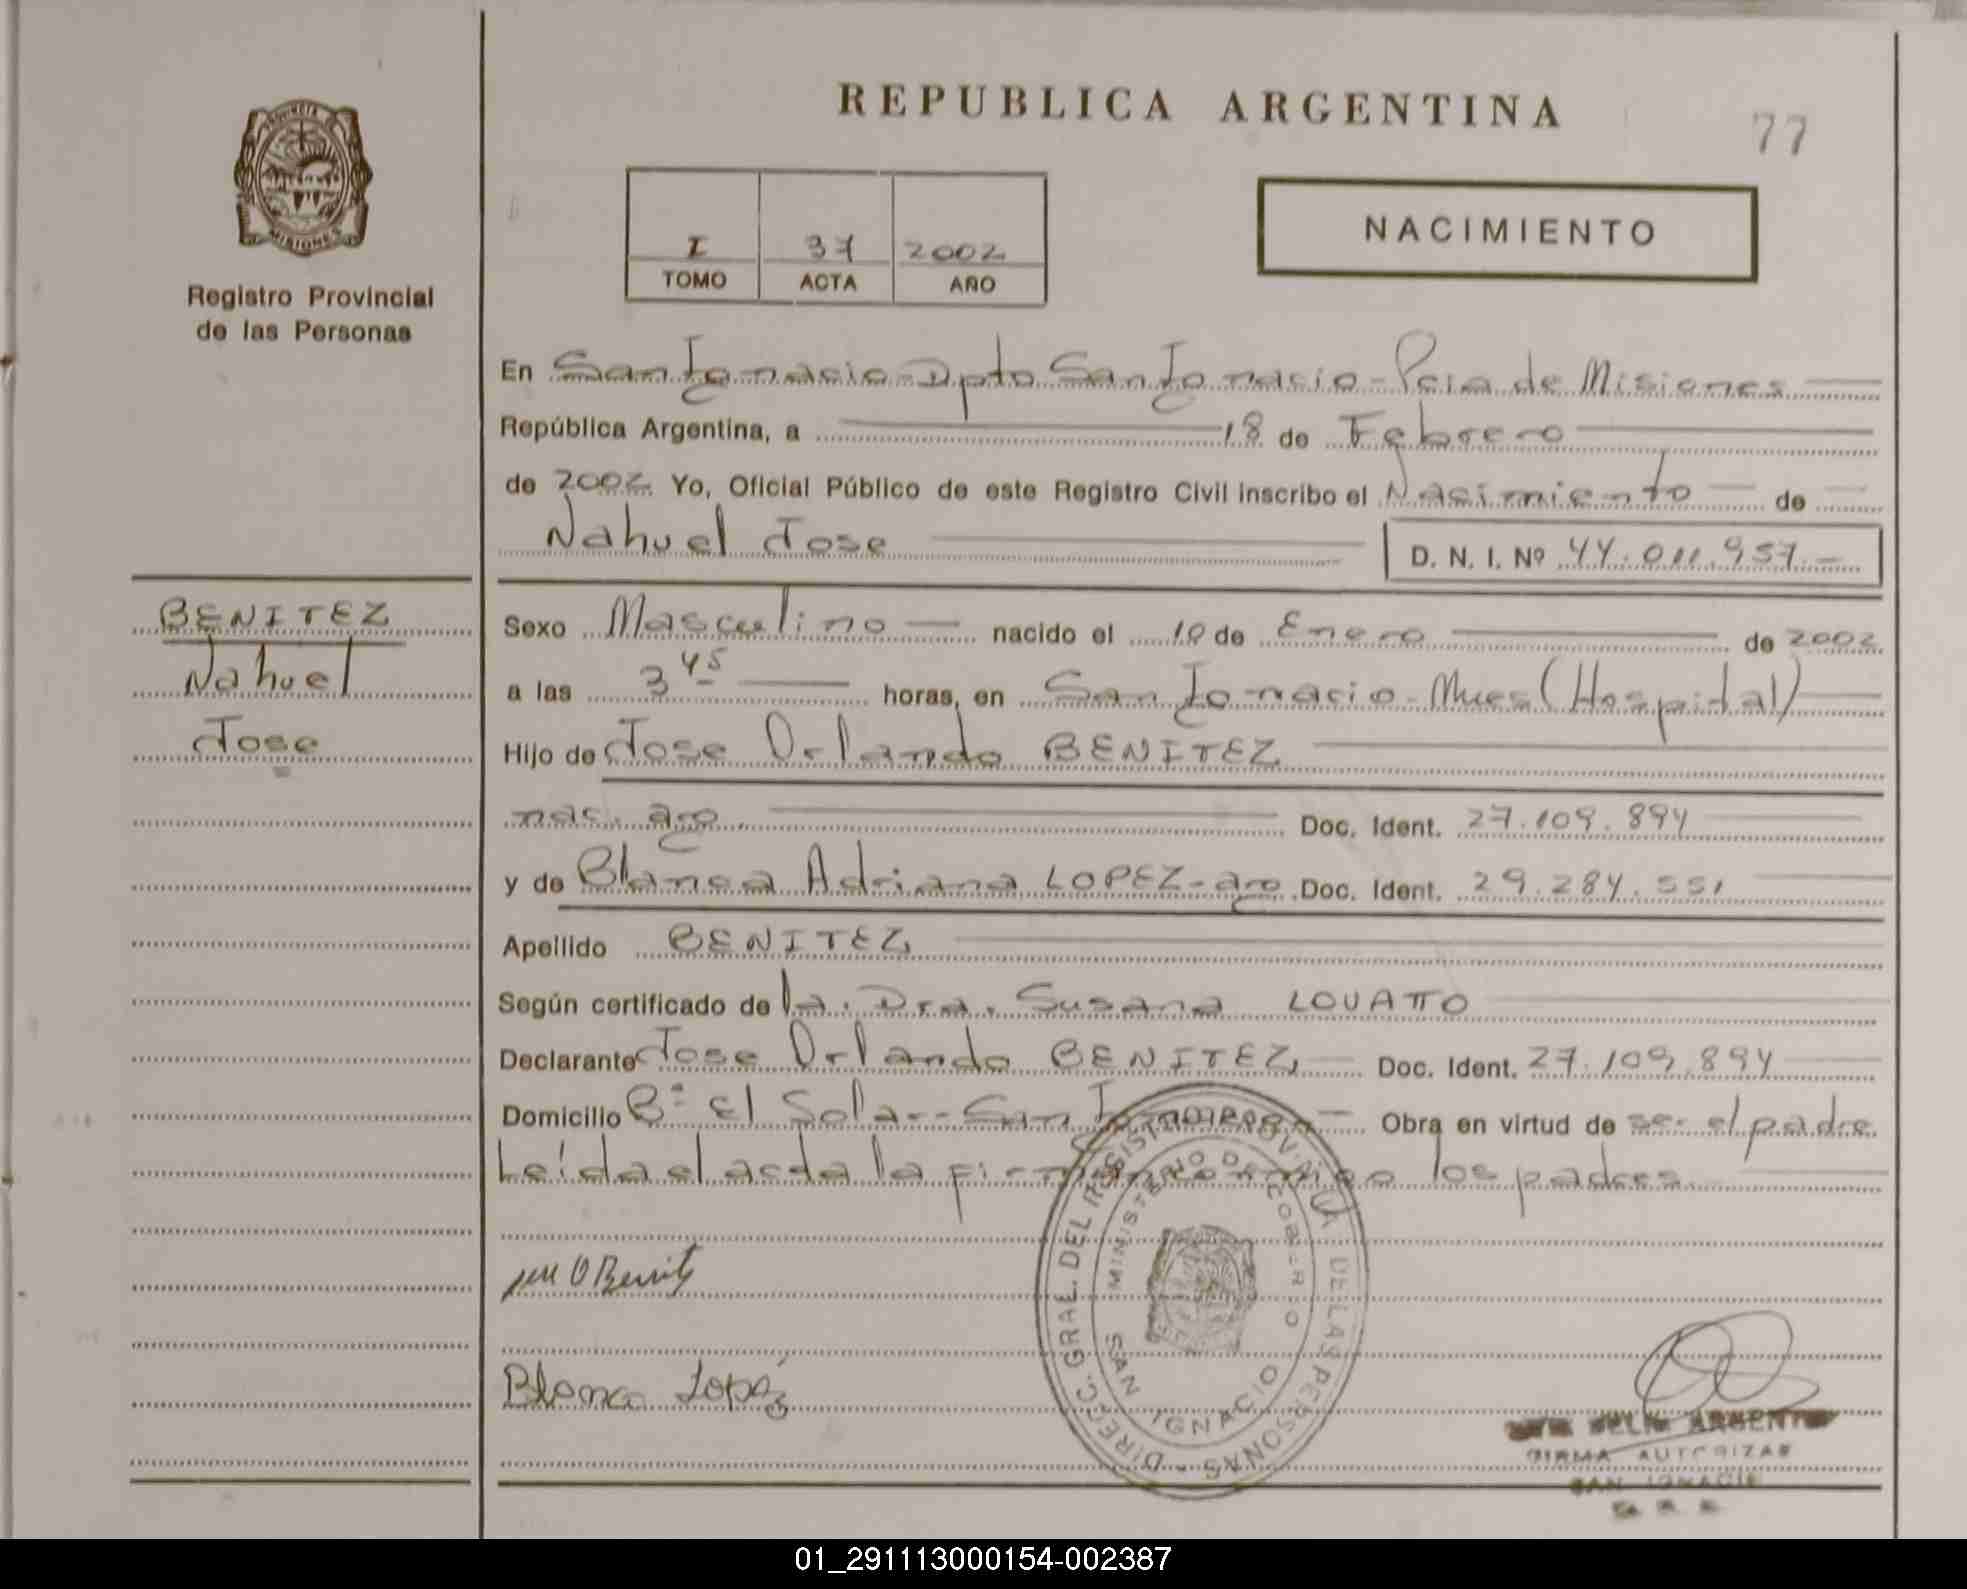 REPUBLICA ARGENTINA
77
PROVINCIA DE
MISIONES
Registro Provincial
de las Personas
I 37 2002
TOMO ACTA AÑO
NACIMIENTO
En San Ignacio Dpto San Ignacio - Pcia de Misiones
República Argentina, a 18 de Febrero
de 2002 Yo, Oficial Público de este Registro Civil inscribo el Nacimiento de
Nahuel Jose D. N. I. Nº 44.011.957.-
BENITEZ
Nahuel
Jose
Sexo Masculino nacido el 10 de Enero de 2002
a las 3 45 horas, en San Ignacio - Mnes (Hospital)
Hijo de Jose Orlando BENITEZ
nac. arg. Doc. Ident. 27.109.894
y de Blanca Adriana LOPEZ - arg. Doc. Ident. 29.284.551
Apellido BENITEZ
Según certificado de la. Dra. Susana LOVATTO
Declarante Jose Orlando BENITEZ Doc. Ident. 27.109.894
Domicilio Bº El Solar - San Ignacio Obra en virtud de ser el padre
Leida el acta la firman conmigo los padres
DIRECC. GRAL. DEL REGISTRO PROVINCIAL DE LAS PERSONAS
MINISTERIO DE GOBIERNO
SAN IGNACIO
Blanca Lopez
FELIX ARGENTO
FIRMA AUTORIZAD
SAN IGNACIO
01_291113000154-002387